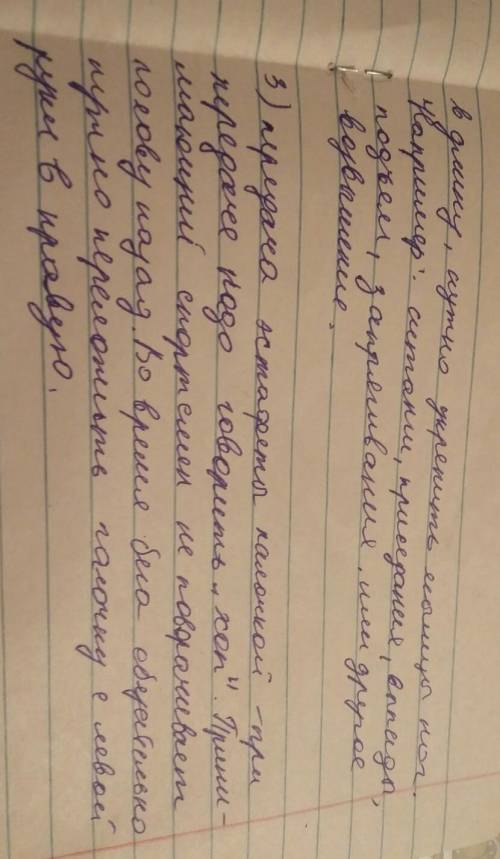 в длину, нужно укрепить мышцы ног.
Например: степы, приседания, выпады,
подъем, запрягивания, или другое
возвышение.
3) передача эстафеты палочкой - при
передаче надо говорить „хоп". Прини-
мающий спортсмен не поворачивает
голову назад. Во время бега обязательно
нужно переложить палочку с левой
руки в правую.